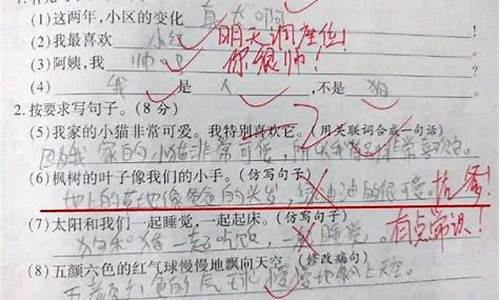 (1)这两年,小区的变化 真大啊
(2)我最喜欢 小红 明天调座位!
(3)阿姨,我 帅吗 你很帅!
(4) 我 是 人 ,不是 狗
2.按要求写句子。(8分)
(5)我家的小猫非常可爱。我特别喜欢它。(用关联词合成一句话)
因为我家的小猫非常可爱,所以我非常喜欢它。
(6)枫树的叶子像我们的小手。(仿写句子)
地上的草地像爸爸的头发,绿油油的很可爱。 找爹!
(7)太阳和我们一起睡觉,一起起床。(仿写句子)
狗和猪一起吃饭,一起睡觉。 有点常识!
(8)五颜六色的红气球慢慢地飘向天空。(修改病句)
五颜六色的气球慢慢地飘上天空。